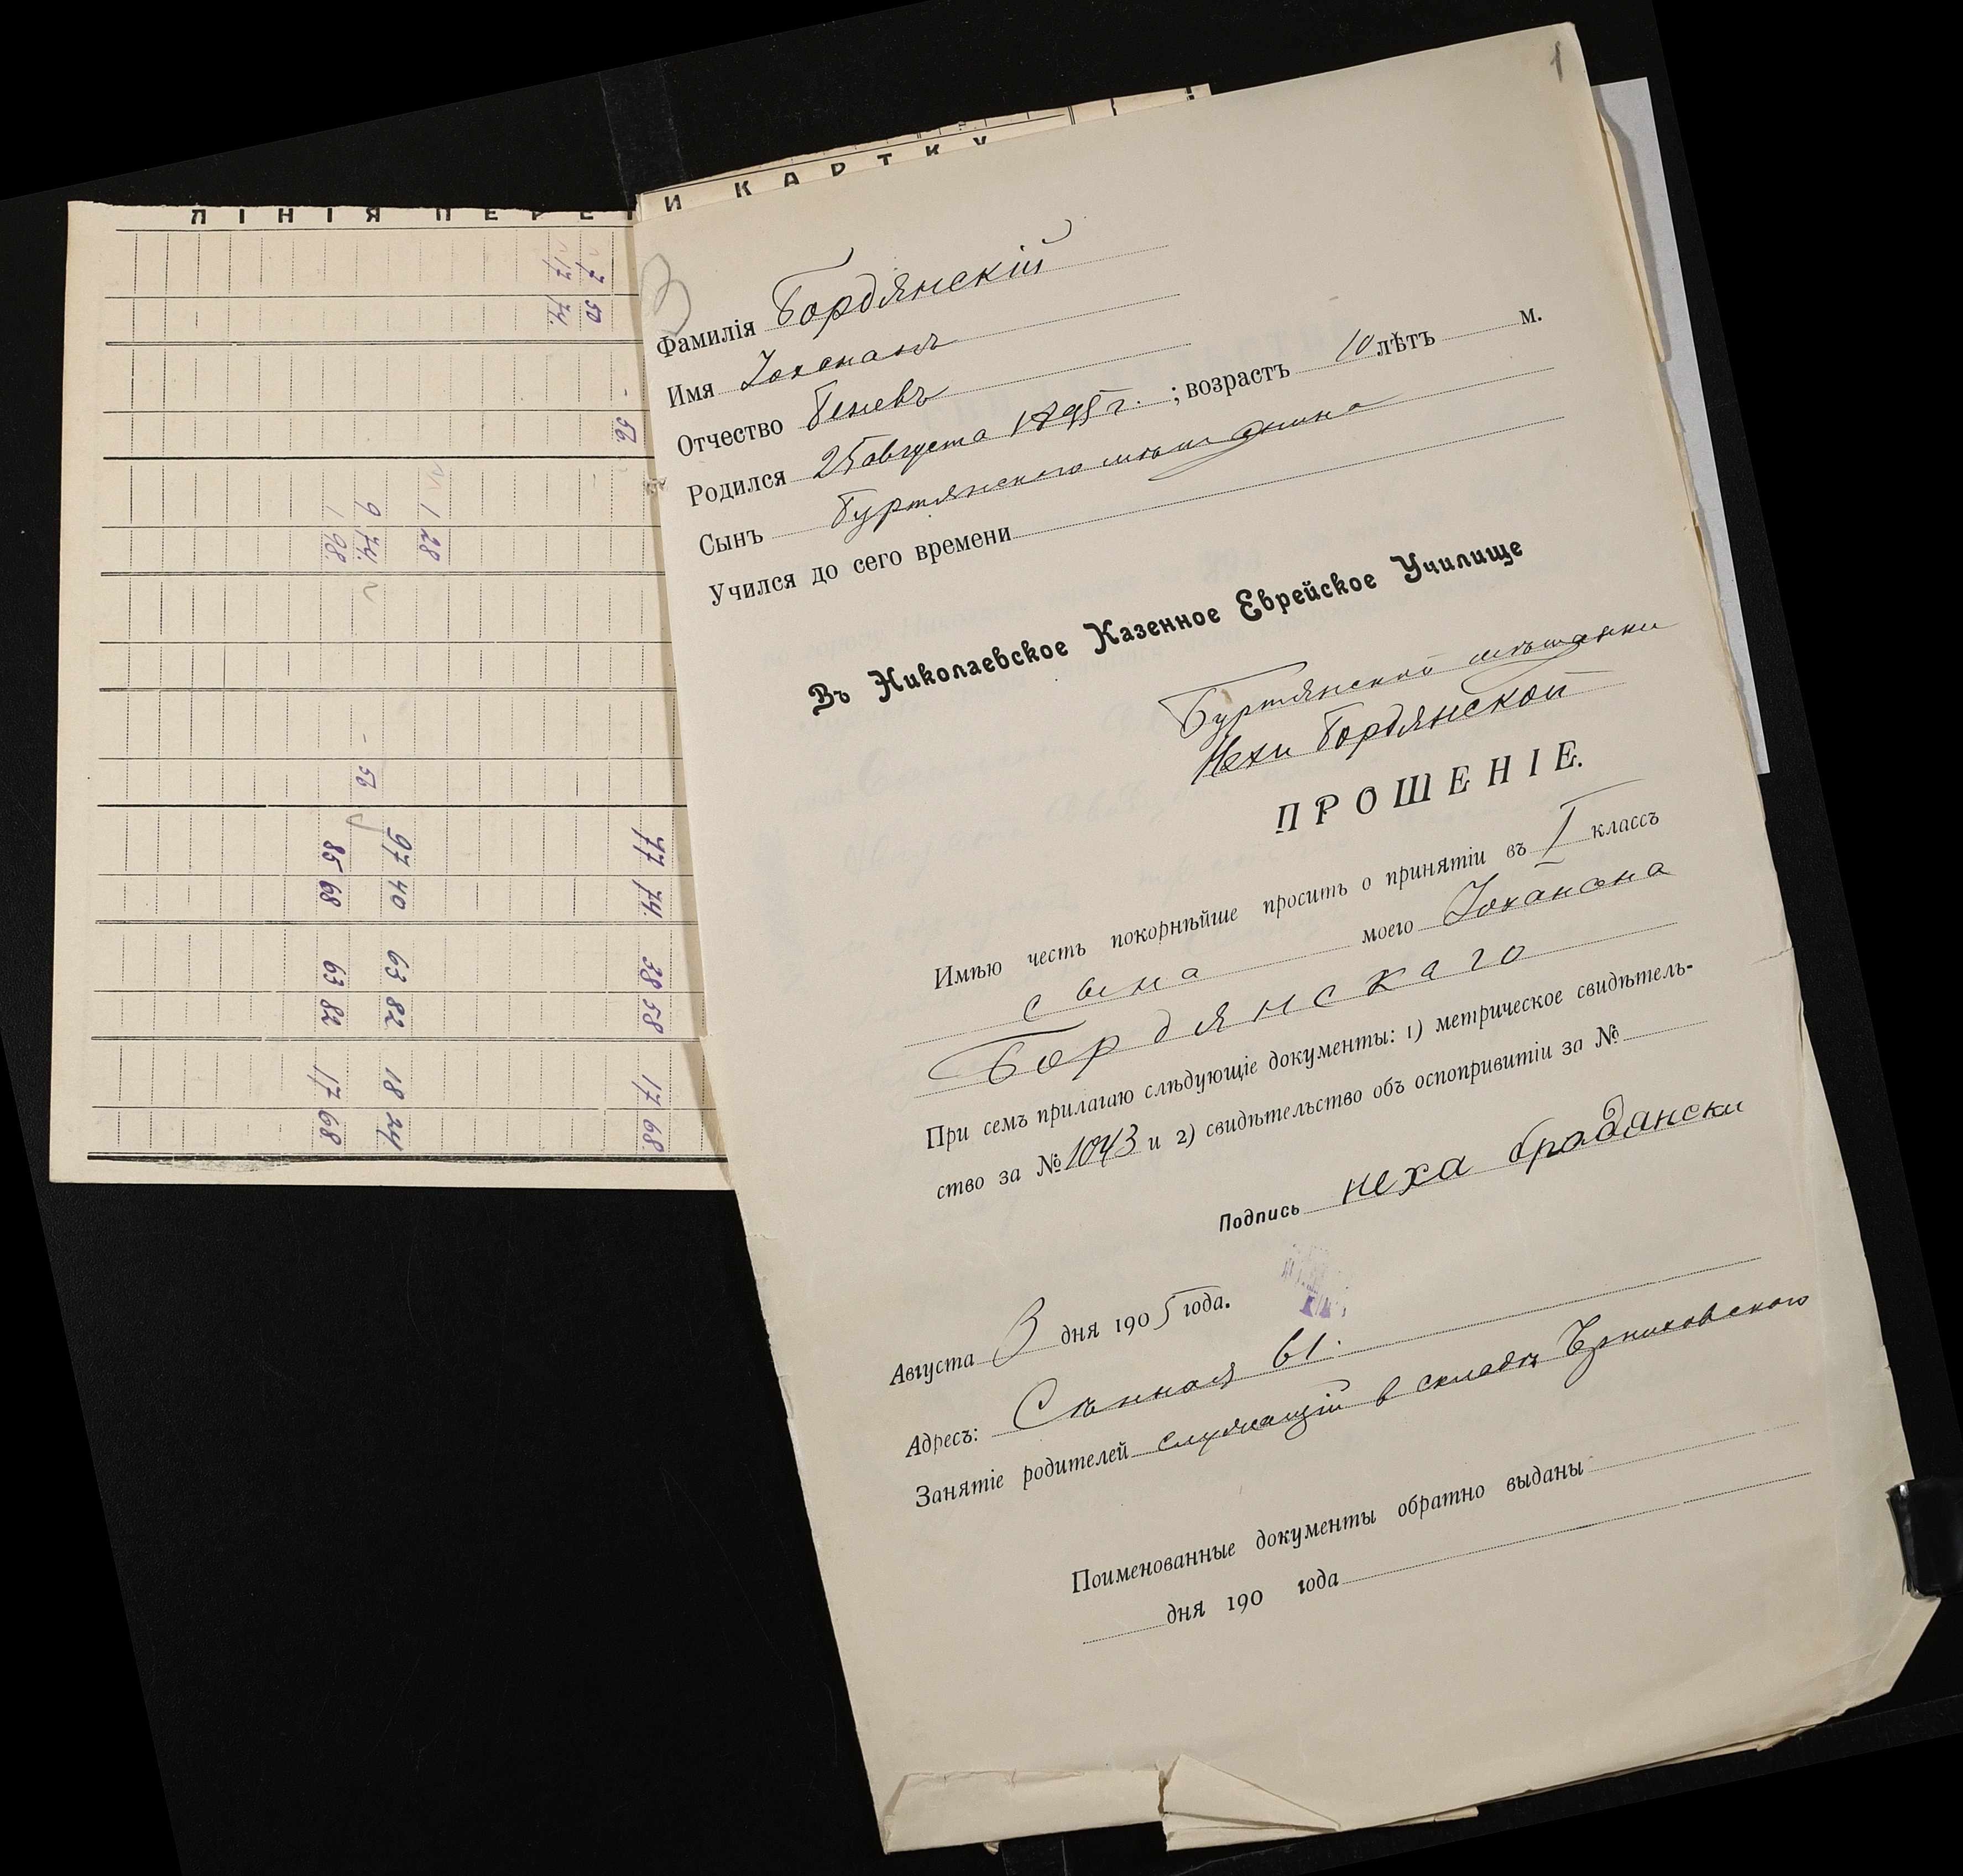 1
ЛІНІЯ ПЕРЕГИ
И КАРТКУ
7 50
17 74.
- 56.
1 28
9 74.
1. 98.
- 56
77 74. 38 58 17 68
97 40 63 82 18 24
85 68 63 82 17 68
Фамилія Бордянскій
Имя Іохананъ
Отчество
Родился 25 августа 1895 г. ; возрастъ 10 лѣтъ м.
Сынъ Буртянского мѣщанина
Учился до сего времени
Въ Николаевское Казенное Еврейское Училище
Буртянской мѣщанки
Нехи Бордянской
ПРОШЕНІЕ.
Имѣю честь покорнѣйше просить о принятіи въ I классъ
сына моего Іоханана
Бордянскаго
При семъ прилагаю слѣдующіе документы: 1) метрическое свидѣтель-
ство за № 1043 и 2) свидѣтельство объ оспопривитіи за №
Подпись неха брадански
Августа 3 дня 1905 года.
Адресъ: Сѣнная 61.
Занятіе родителей служащій в складѣ
Поименованные документы обратно выданы
дня 190 года